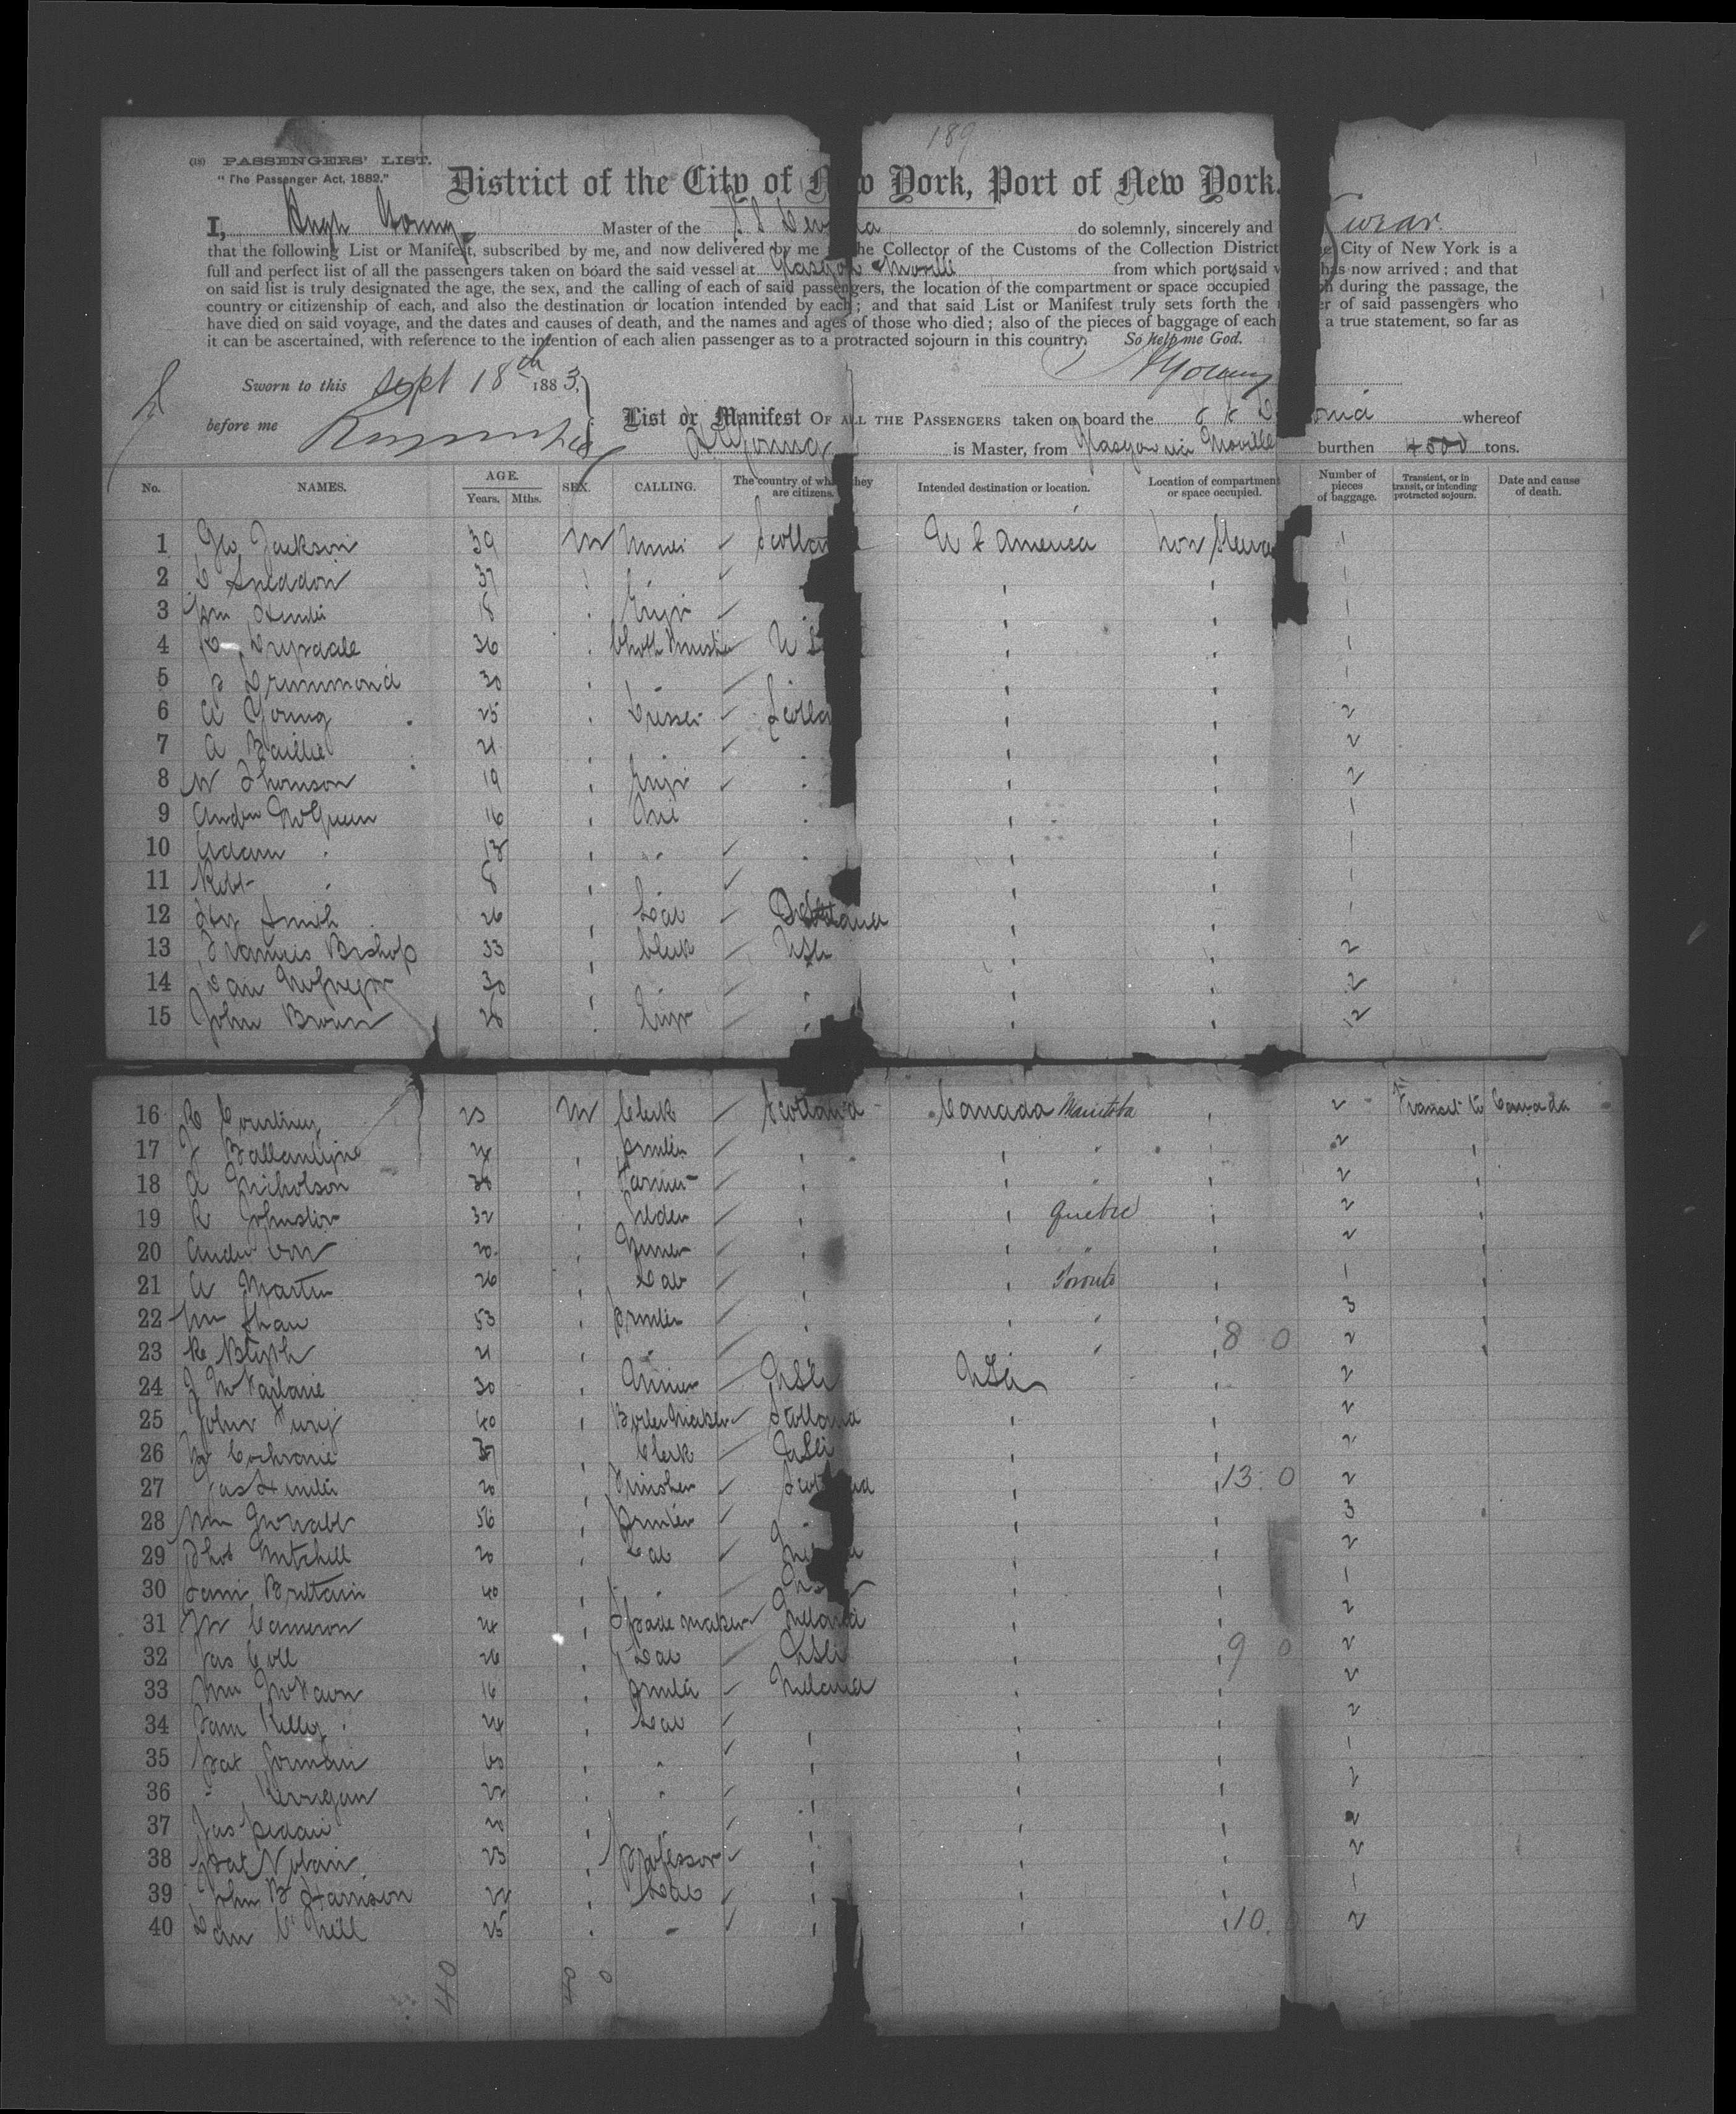 189
(18) PASSENGERS' LIST.
"The Passenger Act, 1882."
District of the City of N w York, Port of New York.
I, Hugh Young Master of the S S Dev ia do solemnly, sincerely and Swear
that the following List or Manifest, subscribed by me, and now delivered by me he Collector of the Customs of the Collection District e City of New York is a
full and perfect list of all the passengers taken on board the said vessel at Glasgow & Moville from which port, said v has now arrived; and that
on said list is truly designated the age, the sex, and the calling of each of said passengers, the location of the compartment or space occupied h during the passage, the
country or citizenship of each, and also the destination or location intended by each; and that said List or Manifest truly sets forth the er of said passengers who
have died on said voyage, and the dates and causes of death, and the names and ages of those who died; also of the pieces of baggage of each a true statement, so far as
it can be ascertained, with reference to the intention of each alien passenger as to a protracted sojourn in this country. So help me God.
Sworn to this Sept 18th 1883, HYoung
before me List or Manifest OF ALL THE PASSENGERS taken on board the S S D onia whereof
H Young is Master, from Glasgow via Moville burthen 4500 tons.
No. NAMES. AGE. Years. Mths. SEX. CALLING. The country of wh they are citizens. Intended destination or location. Location of compartment or space occupied. Number of pieces of baggage. Transient, or in transit, or intending protracted sojourn. Date and cause of death.
1 Geo Jackson 39 M Miner Scotlan U S America 1
2 D Sneddon 37 1
3 Wm Hunter 18 Engr 1
4 R Drysdale 36 U S 1
5 J Drummond 30 1
6 A Young 25 Scotla 2
7 A Baillie 21 2
8 W Thomson 19 Engr 2
9 Andw McQueen 16 1
10 Adam " 13 1
11 Robt " 8 1
12 Hy Smith 26 Lab 1
13 Francis Bishop 33 Clerk USA 2
14 Dan McGregor 30 2
15 John Brown 26 Engr 2
16 R Courtney 23 M Clerk Scotland Canada Manitoba 2 Transit to Canada
17 J Ballantyne 24 2
18 A Nicholson Farmer 2
19 R Johnston 32 Quebec 2
20 Andw Orr 20 " 2
21 A Martin 26 Lab Toronto 1
22 Wm Shaw 53 " 3
23 R Blyth 21 " " 8 0 2
24 J McFarlane 30 USA USA 2
25 John Fury 40 Boiler Maker Scotland 2
26 W Cochrane Clerk USA 2
27 Jas Hunter 20 Finisher Scot nd 13 0 2
28 Wm McNabb 56 3
29 Thos Mitchell 20 Lab 2
30 Sam Brittain 40 1
31 W Cameron 24 Spade maker Ireland 2
32 Jas Coll 26 Lab USA 9 0 2
33 Wm 16 Ireland 2
34 Sam Kelly 24 Lab 2
35 Pat Gorman 60 " 1
36 " Kerrigan 22 " 1
37 Jas 20 2
38 Pat Nolan 23 Professor 2
39 John B Harrison 22 Lab 1
40 Dan O'Neill 25 " 10. 2
40